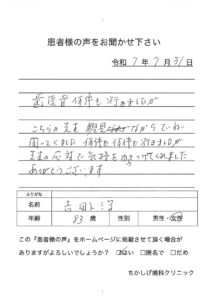 患者様の声をお聞かせ下さい
令和 7 年 7 月 31 日
歯医者何件も行きましたが
こちらの先生 ながらていね
聞いてくました 何件も何件も行きましたが
先生の応対で気持を くれました
ありがとうございます
ふりがな
名前
年齢 83 歳 性別 男性・女性
この「患者様の声」をホームページに掲載させて頂く場合が
ありますがよろしいでしょうか? はい 匿名で だめ
ちかしげ歯科クリニック